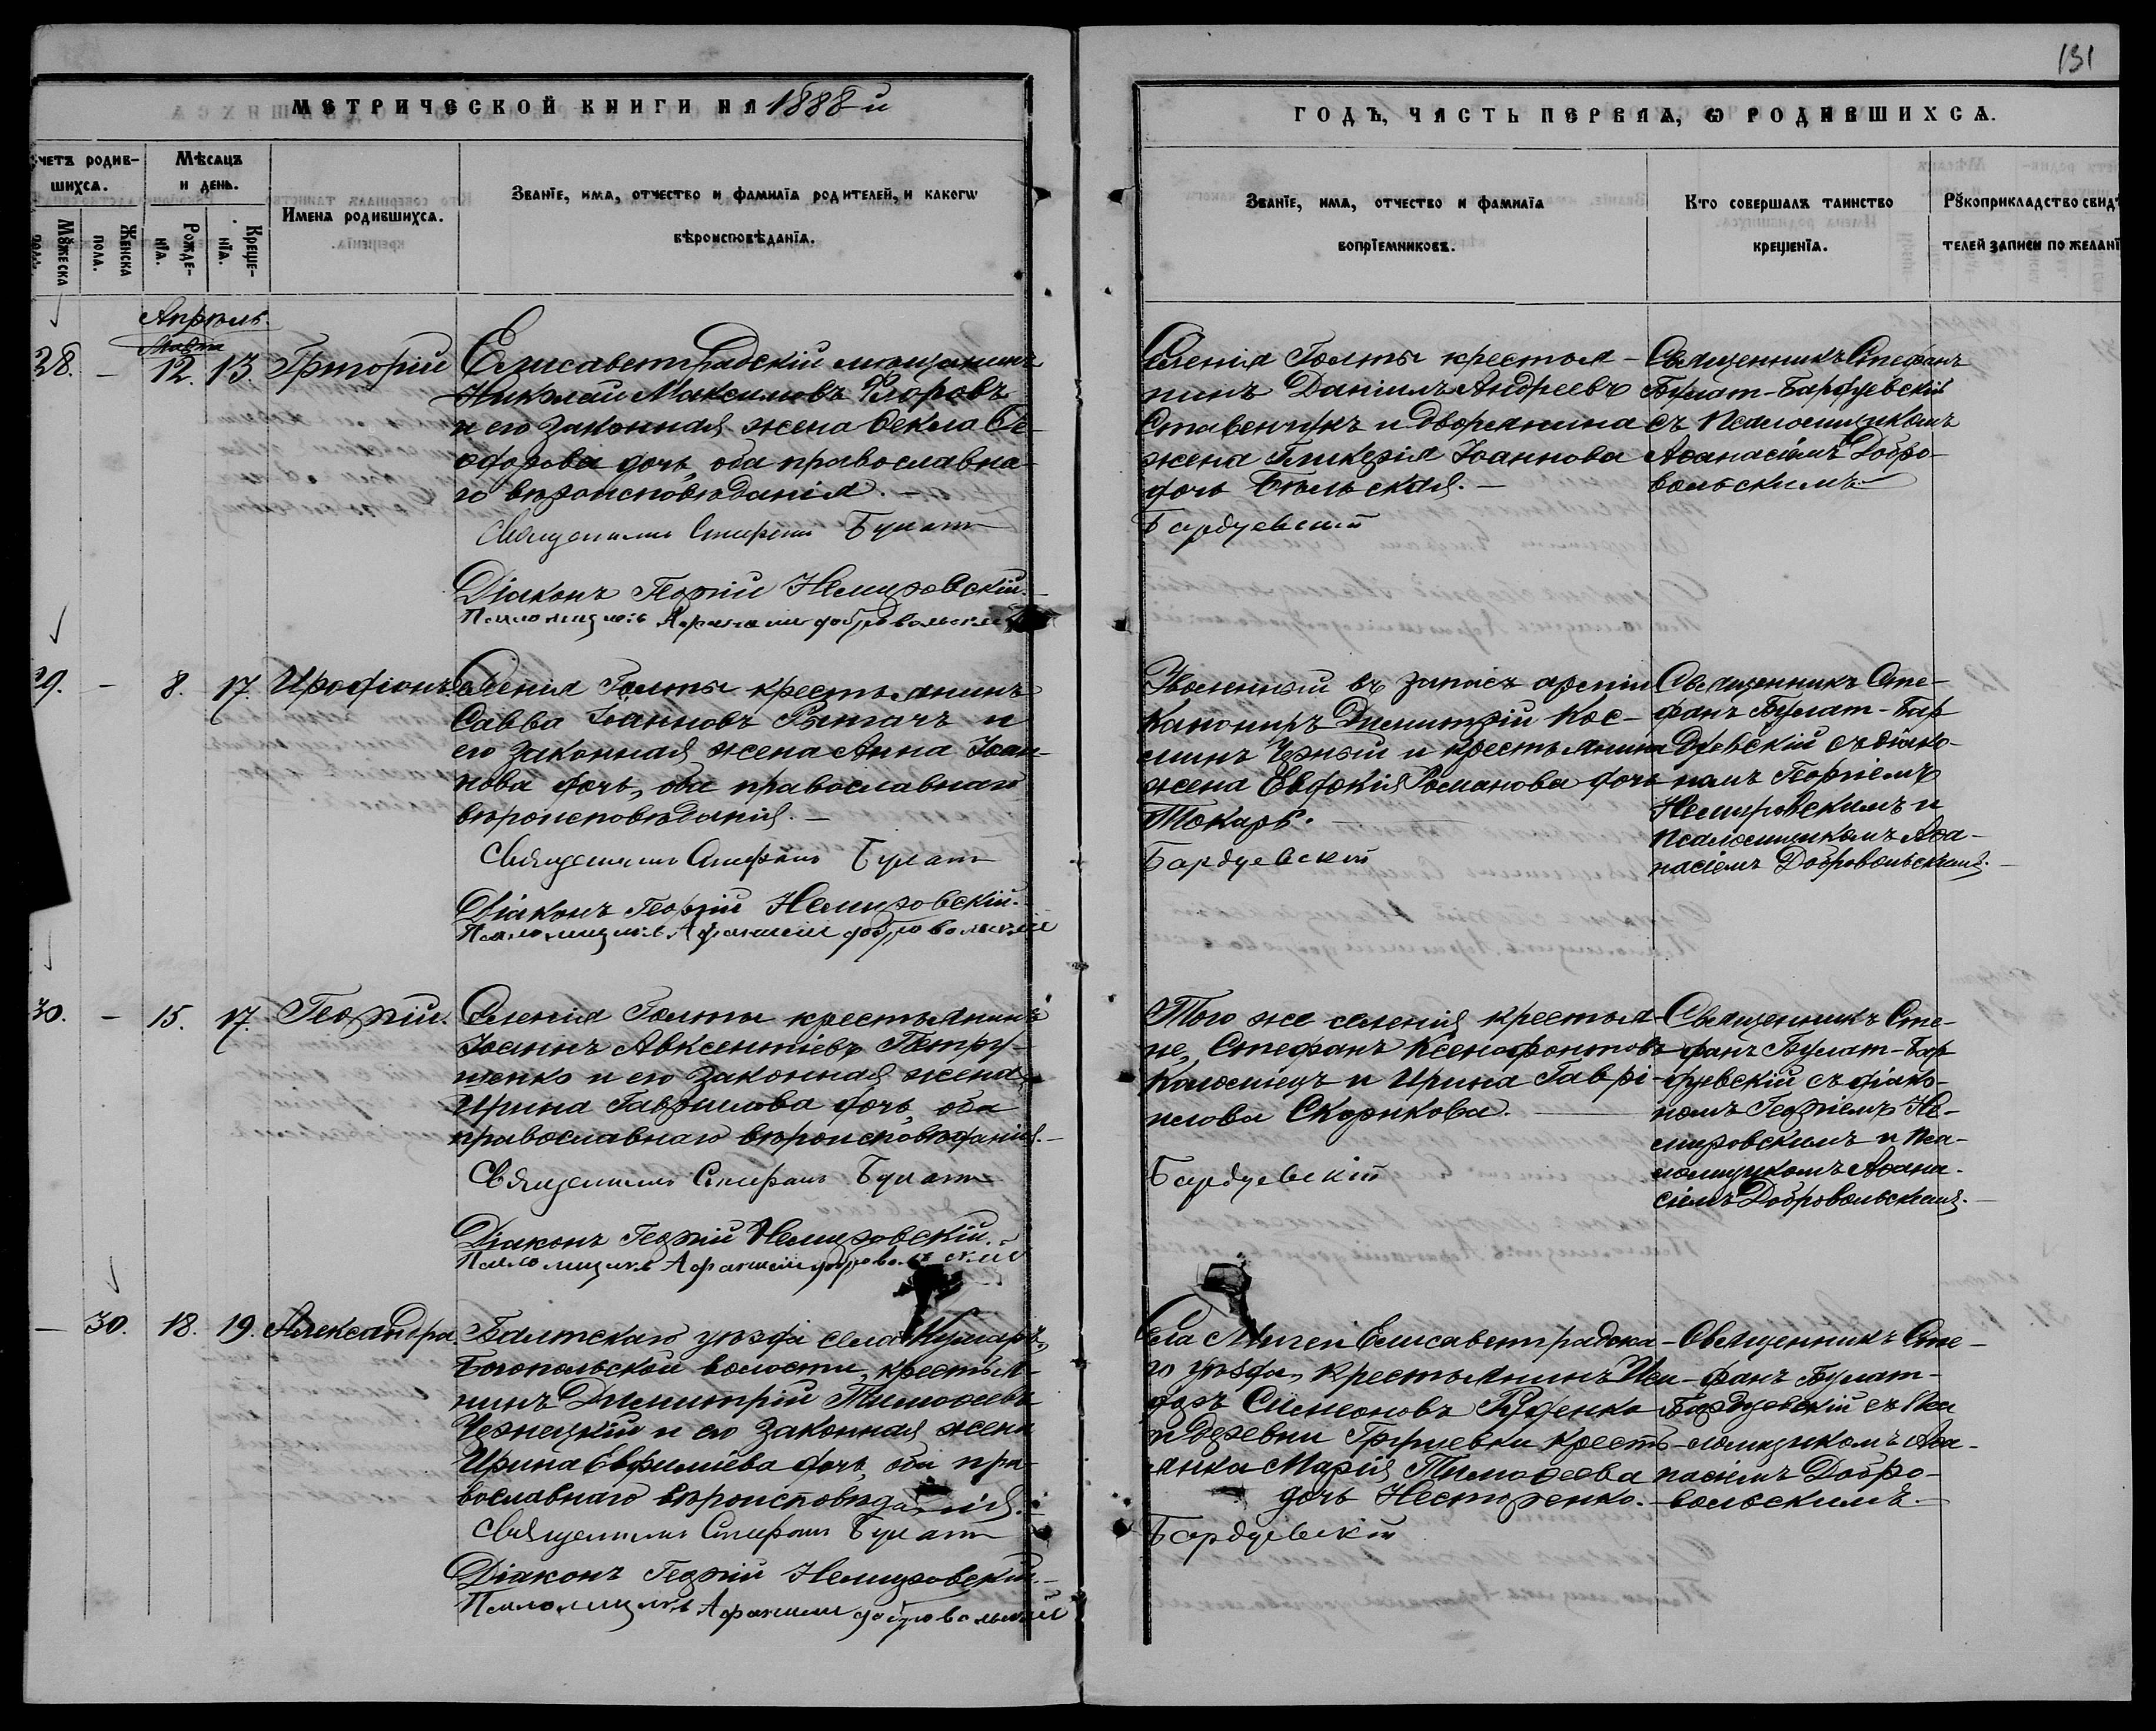 131
МЕТРИЧЕСКОЙ КНИГИ НА 1888-й
ГОДЪ, ЧАСТЬ ПЕРВАЯ, Ѡ РОДИВШИХСѦ.
счетъ родив-
шихсѧ.
Мѣсѧцъ
и день.
Имена родившихсѧ.
Званїе, имѧ, отчество и фамилїѧ родителей, и какогѡ
вѣроисповѣданїѧ.
Мꙋжеска
пола.
Женска
пола.
Рожде-
нїѧ.
Креще-
нїѧ.
Званїе, имѧ, отчество и фамилїѧ
воспрїемниковъ.
Кто совершалъ таинство
крещенїѧ.
Рꙋкоприкладство свидѣ
телей записи по желанї
Апрѣль
Марта
28. — 12. 13. Григорій
Елисаветградскій мѣщанинъ
Николай Максимовъ Флоровъ
и его законная жена Ѳекла Ѳе-
одорова дочь, оба православна-
го вѣроисповѣданія. —
Священникъ Стефанъ Булатъ
Діаконъ Георгій Немировскій.
Псаломщикъ Афанасій Добровольскій
Селенія Голты крестья-
нинъ Даніилъ Андреевъ
и дворянина
жена Гликерія Іоаннова
дочь Бѣльская. —
Бардуевскій
Священникъ Стефанъ
Булат-Бардуевскій
съ Псаломщикомъ
Аѳанасіемъ Добро-
вольскимъ
29. — 8. 17. Иродіонъ
Селенія Голты крестьянинъ
Савва Іоанновъ и
его законная жена Анна Іоан-
нова дочь, оба православнаго
вѣроисповѣданія. —
Священникъ Стефанъ Булатъ
Діаконъ Георгій Немировскій.
Псаломщикъ Афанасій Добровольскій
Уволенный въ запасъ арміи
Канониръ Димитрій Кос-
минъ Чорный и крестьянина
жена Евдокія Романова дочь
Токарь. —
Бардуевскій
Священникъ Сте-
фанъ Булат-Бар
дуевскій съ діако-
номъ Георгіемъ
Немировскимъ и
Псаломщикомъ Аѳа-
насіемъ Добровольскимъ.
30. — 15. 17. Георгій.
Селенія Голты крестьянинъ
Іоаннъ Авксентіевъ Петру-
шенко и его законная жена
Ирина Гавриилова дочь, оба
православнаго вѣроисповѣданія.
Священникъ Стефанъ Булатъ
Діаконъ Георгій Немировскій.
Псаломщикъ Афанасій Добровольскій
Того же селенія крестья-
не, Стефанъ Ксенофонтовъ
Коломіецъ и Ирина Гаврі-
илова Скорикова. —
Бардуевскій
Священникъ Сте-
фанъ Булат-Бар
дуевскій съ діако-
номъ Георгіемъ Не-
мировскимъ и Пса-
ломщикомъ Аѳана-
сіемъ Добровольскимъ.
— 30. 18. 19. Александра
Балтскаго уѣзда села
Богопольской волости, крестья-
нинъ Димитрій Тимоѳеевъ
Чернецкій и его законная жена
Ирина Евфиміева дочь, оба пра-
вославнаго вѣроисповѣданія.
Священникъ Стефанъ Булатъ
Діаконъ Георгій Немировскій.
Псаломщикъ Афанасій Добровольскій
Села Мигеи Елисаветградска-
го уѣзда, крестьянинъ Иси-
доръ Симеоновъ Руденко
и деревни Грушевки кресть-
янка Марія Тимоѳеева
дочь Нестеренко. —
Бардуевскій
Священникъ Сте-
фанъ Булат-
Бардуевскій съ Пса
ломщикомъ Аѳа-
насіемъ Добро-
вольскимъ. —